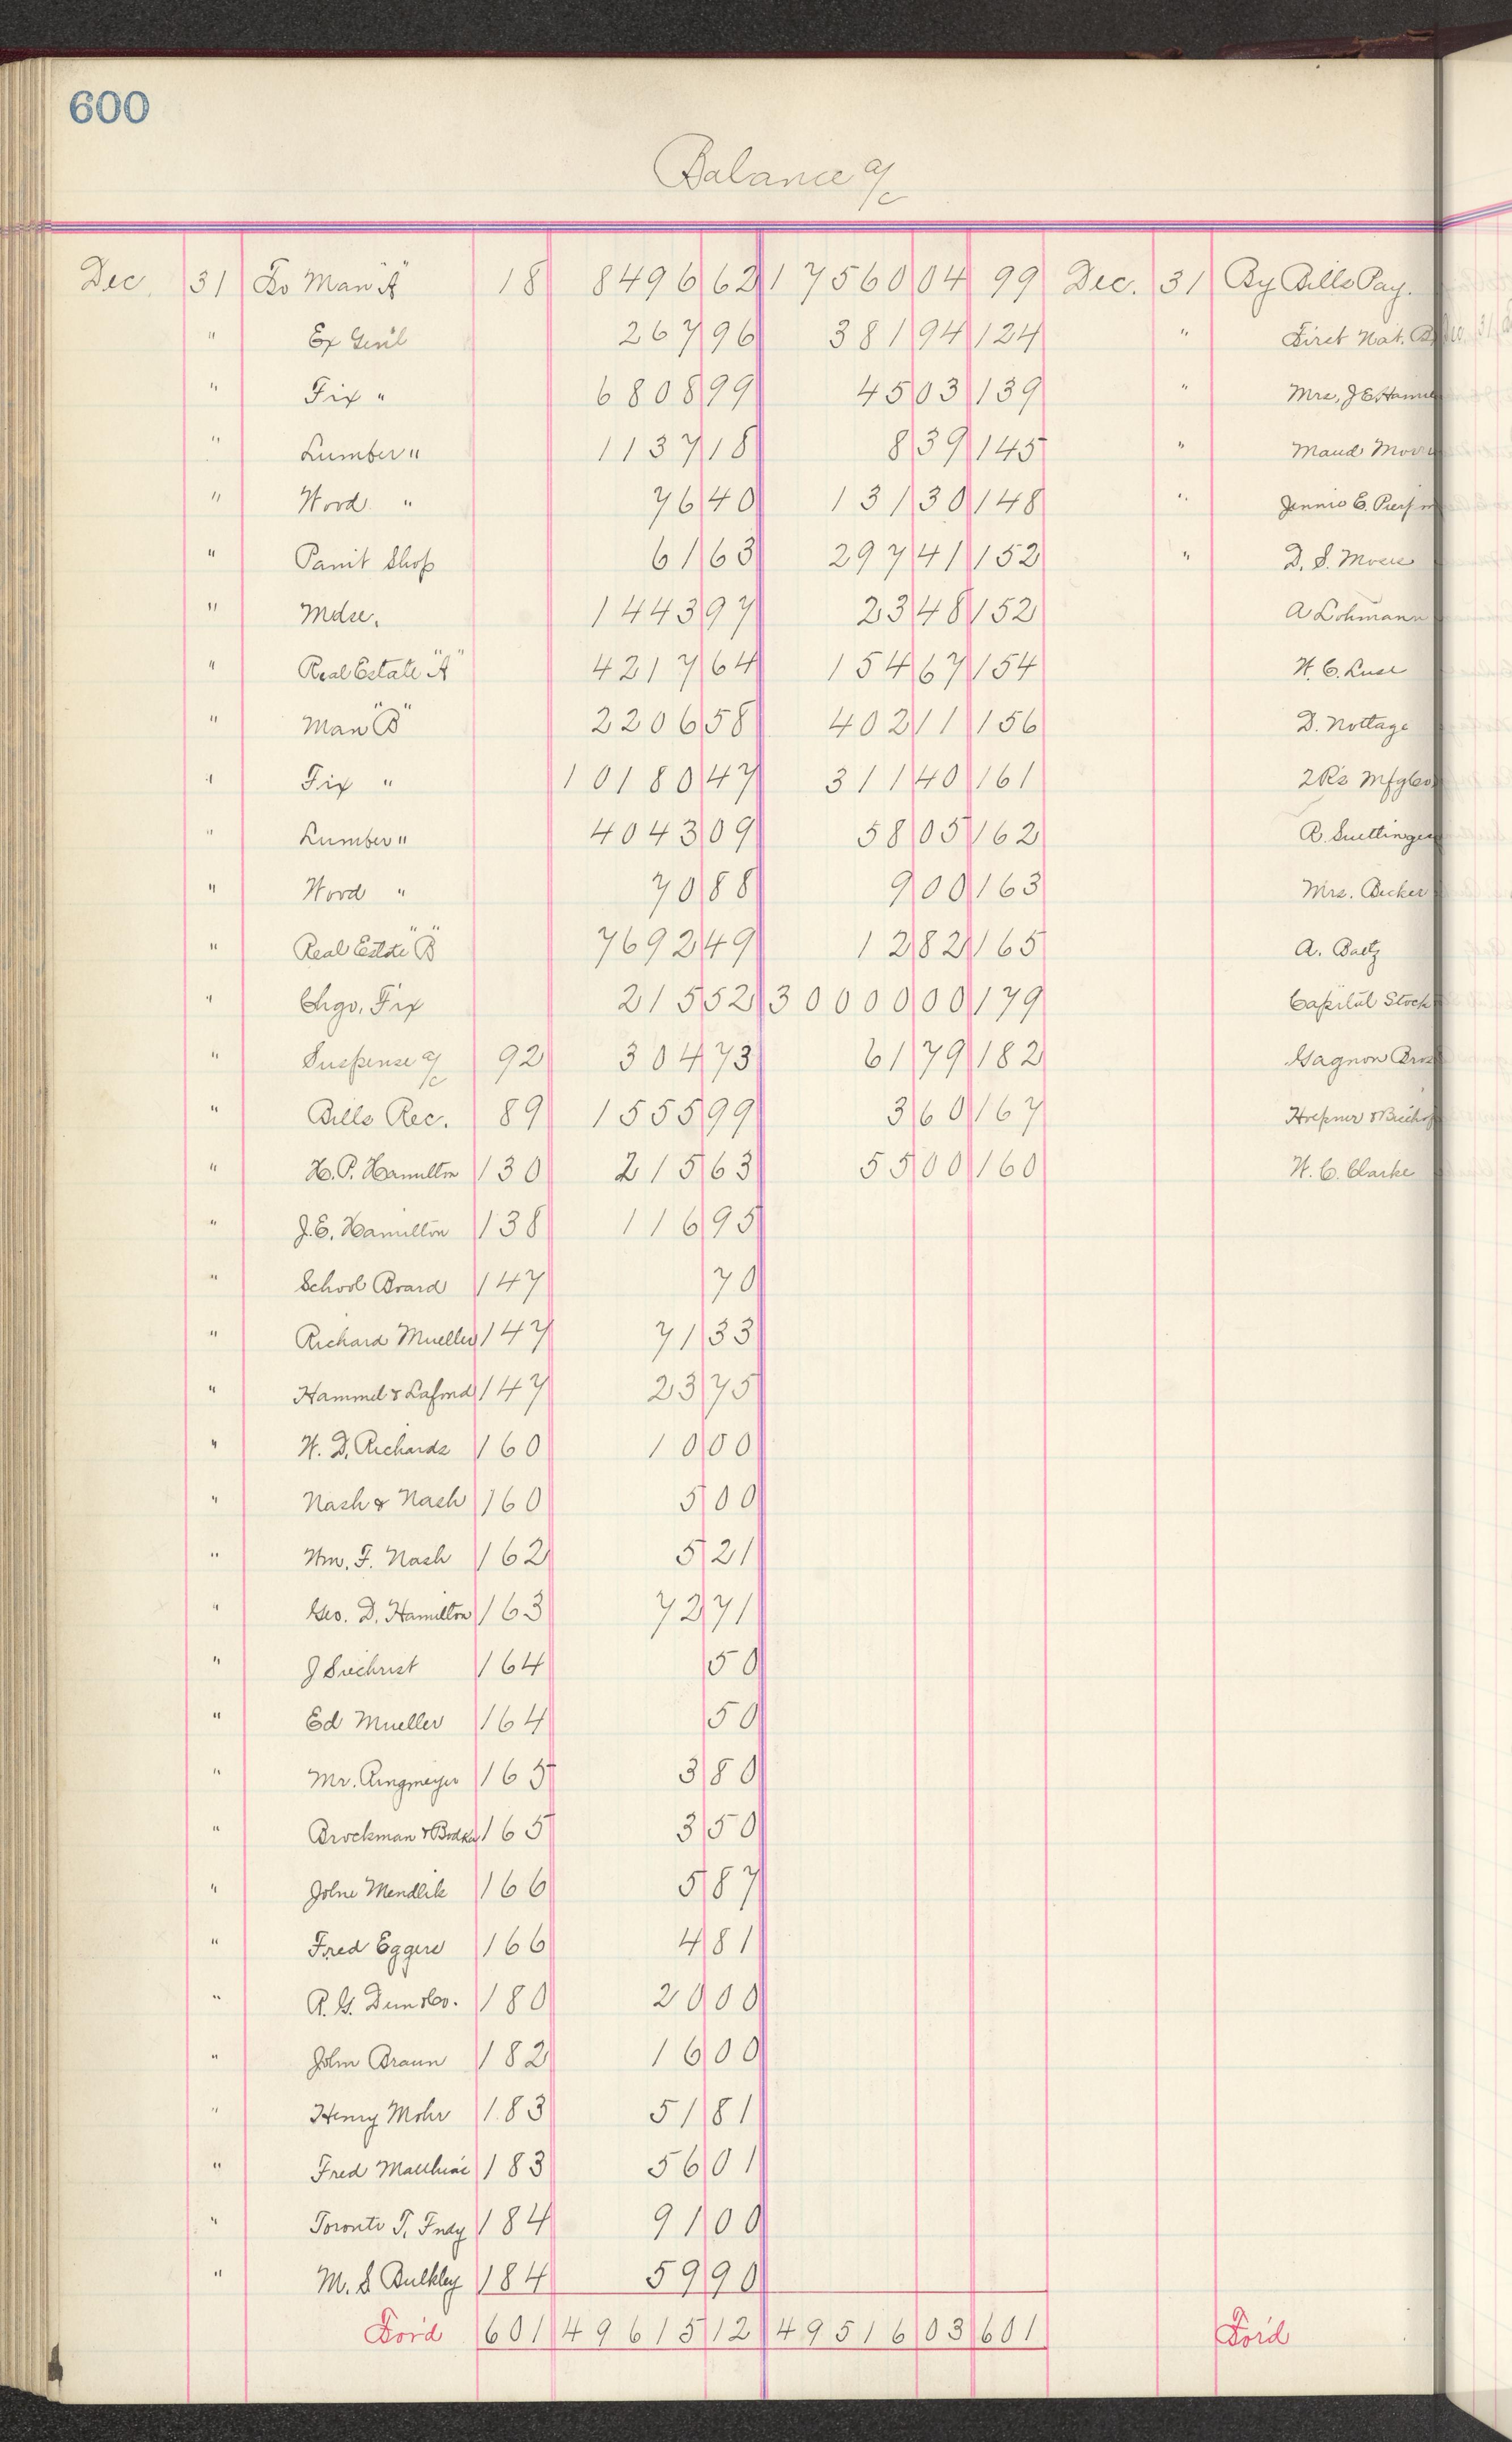 600
Balance a/c
Dec. 31 To Man "A" 18 8496 62 17560 04 99 Dec. 31 By Bills Pay.
" Ex Genl 267 96 381 94 124 " First Nat. B
" Fix " 6808 99 45 03 139 " Mrs. J E Hamil
" Lumber " 1137 18 8 39 145 " Maud Mor
" Wood " 76 40 131 30 148 " Jennie E. Pierson
" Paint Shop 61 63 297 41 152 " D. S. Moses
" Mdse. 1443 97 23 48 152 A Lohmann
" Real Estate "A" 4217 64 154 67 154 W. C. Luse
" Man "B" 2206 58 402 11 156 D. Nottage
" Fix " 10180 47 311 40 161 2 Rs Mfg Co
" Lumber " 4043 09 58 05 162 R. Suettinger
" Wood " 70 88 9 00 163 Mrs. Becker
" Real Estate "B" 7692 49 12 82 165 A. Baetz
" Chgo. Fix 215 52 30000 00 179 Capital Stock
" Suspense a/c 92 304 73 61 79 182 Gagnon Bros
" Bills Rec. 89 1555 99 3 60 167
" H. P. Hamilton 130 215 63 55 00 160 W. C. Clarke
" J. E. Hamilton 138 116 95
" School Board 147 70
" Richard Mueller 147 71 33
" Hammel & Lafond 147 23 75
" W. D. Richards 160 10 00
" Nash & Nash 160 5 00
" Wm. F. Nash 162 5 21
" Geo. D. Hamilton 163 72 71
" J Siechrist 164 50
" Ed Mueller 164 50
" Mr. Ringmeyer 165 3 80
" Brockman & 165 3 50
" John Mendlik 166 5 87
" Fred Eggers 166 4 81
" R. G. Dun & Co. 180 20 00
" John Braun 182 16 00
" Henry Mohr 183 51 81
" Fred Matthias 183 56 01
" Toronto T. Fndy 184 91 00
" M. S Bulkley 184 59 90
For'd 601 49615 12 49516 03 601 For'd